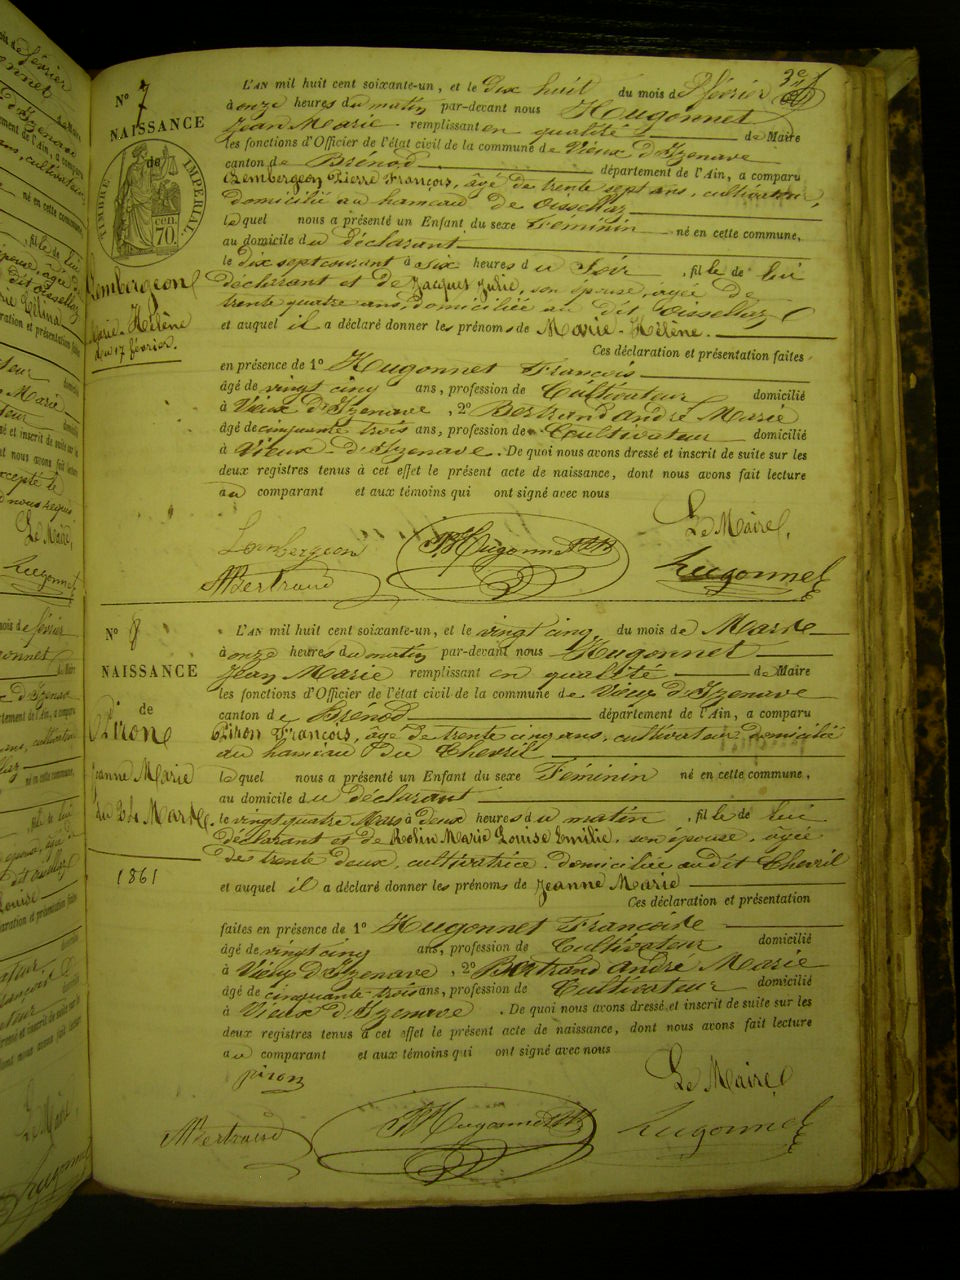 3e
N° 7
NAISSANCE
de
TIMBRE IMPÉRIAL
70 cen.
Lembergeon
Marie-Hélène
du 17 février.
L'AN mil huit cent soixante-un, et le dix huit du mois de février
à onze heures du matin par-devant nous Hugonnet
Jean Marie remplissant en qualité de Maire
les fonctions d'Officier de l'état civil de la commune de Vieux d'Izenave
canton de Brénod département de l'Ain, a comparu
Lembergeon Pierre François, âgé de trente sept ans, cultivateur,
domicilié au hameau de Oissellaz
lequel nous a présenté un Enfant du sexe Féminin né en cette commune,
au domicile du déclarant
le dix sept courant à six heures du Soir, fille de lui
déclarant et de Jacques Julie, son épouse, agée de
trente quatre ans, domiciliée au dit Oissellaz
et auquel il a déclaré donner les prénoms de Marie-Hélène.
Ces déclaration et présentation faites
en présence de 1° Hugonnet François
âgé de vingt cinq ans, profession de Cultivateur domicilié
à Vieux d'Izenave, 2° Bertrand André Marie
âgé de cinquante trois ans, profession de Coultivateur domicilié
à Vieux-d'Izenave. De quoi nous avons dressé et inscrit de suite sur les
deux registres tenus à cet effet le présent acte de naissance, dont nous avons fait lecture
au comparant et aux témoins qui ont signé avec nous
Le Maire,
Lembergeon Hugonnet
ABertrand Hugonnet
N° 8
NAISSANCE
de
Piron
Jeanne Marie
du 24 Mars
1861
L'AN mil huit cent soixante-un, et le vingt cinq du mois de Mars
à onze heures du matin par-devant nous Hugonnet
Jean Marie remplissant en qualité de Maire
les fonctions d'Officier de l'état civil de la commune de Vieux d'Izenave
canton de Brénod département de l'Ain, a comparu
Piron François, âgé de trente cinq ans, cultivateur domicilié
au hamiau du Chevril
lequel nous a présenté un Enfant du sexe Féminin né en cette commune,
au domicile du déclarant
le vingt quatre Mars à deux heures du matin, fille de lui
déclarant et de Rolin Marie Louise Emilie, son épouse, agée
de trente deux, cultivatrice domiciliée au dit Chevril
et auquel il a déclaré donner les prénoms de Jeanne Marie
Ces déclaration et présentation
faites en présence de 1° Hugonnet François
âgé de vingt cinq ans, profession de Cultivateur domicilié
à Vieux d'Izenave, 2° Bertrand André Marie
âgé de cinquante-trois ans, profession de Cultivateur domicilié
à Vieux d'Izenave. De quoi nous avons dressé et inscrit de suite sur les
deux registres tenus à cet effet le présent acte de naissance, dont nous avons fait lecture
au comparant et aux témoins qui ont signé avec nous
piron Le Maire
ABertrand Hugonnet Hugonnet